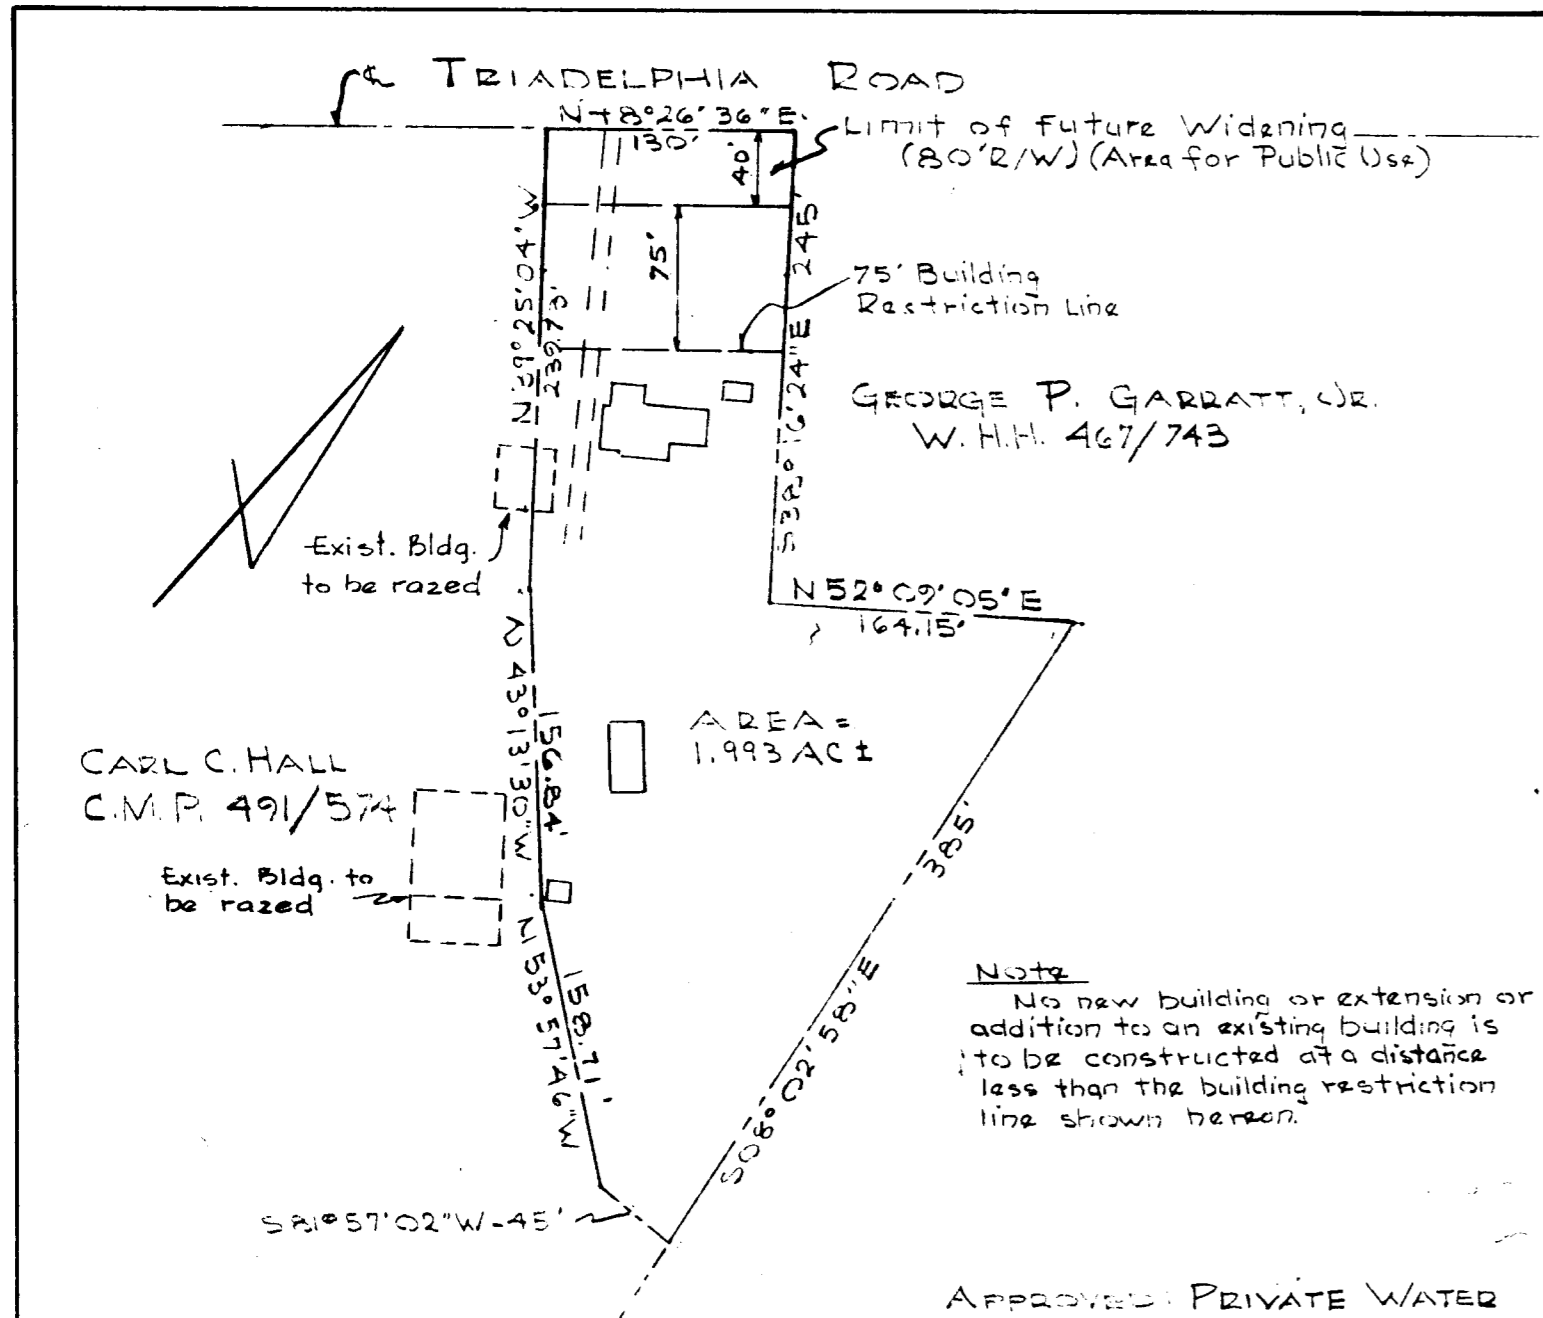 ℄ TRIADELPHIA ROAD
N 48° 26' 36" E
130'
Limit of Future Widening
(80' R/W) (Area for Public Use)
40'
75'
245'
S 38° 16' 24" E
75' Building
Restriction Line
N 39° 25' 04" W
239.73'
GEORGE P. GARRATT, JR.
W. H.H. 467/743
Exist. Bldg.
to be razed
N 52° 09' 05" E
164.15'
N 43° 13' 30" W
156.84'
AREA =
1.993 AC ±
CARL C. HALL
C.M.P. 491/574
Exist. Bldg. to
be razed
385'
S 08° 02' 58" E
N 53° 57' 46" W
158.71'
Note
No new building or extension or
addition to an existing building is
to be constructed at a distance
less than the building restriction
line shown hereon.
S 81° 57' 02" W - 45'
APPROVED: PRIVATE WATER